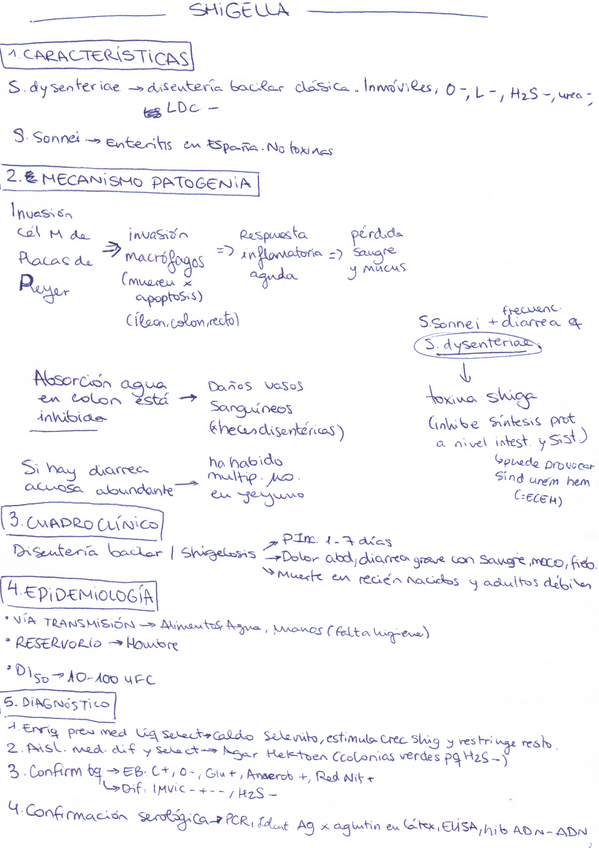 SHIGELLA
1. CARACTERÍSTICAS
S. dysenteriae → disentería bacilar clásica. Inmóviles, O-, L-, H2S-, urea-,
LDC -
S. Sonnei → Enteritis en España. No toxinas
2. MECANISMO PATOGENIA
Invasión
cél M de
Placas de
Peyer
⇒ invasión
macrófagos
(mueren x
apoptosis)
(íleon, colon, recto)
⇒ Respuesta
inflamatoria
aguda
⇒ pérdida
sangre
y mucus
frecuenc.
S. Sonnei + diarrea q
S. dysenteriae
↓
toxina shiga
(inhibe síntesis prot
a nivel intest. y Sist.)
↳ puede provocar
sind urem hem
(=ECEH)
Absorción agua
en colon está →
inhibida
Daños vasos
Sanguíneos
(heces disentéricas)
Si hay diarrea
acuosa abundante →
ha habido
multip. mo.
en yeyuno
3. CUADRO CLÍNICO
Disentería bacilar / Shigelosis
→ P Inc. 1-7 días
→ Dolor abd, diarrea grave con sangre, moco, fieb.
→ Muerte en recién nacidos y adultos débiles
4. EPIDEMIOLOGÍA
• VÍA TRANSMISIÓN → Alimentos, Agua, manos (falta higiene)
• RESERVORIO → Hombre
• DI50 → 10-100 UFC
5. DIAGNÓSTICO
1. Enriq prev med líq select → Caldo selenito, estimula crec Shig y restringe resto.
2. Aisl. med. dif y select → Agar Hektoen (colonias verdes pq H2S-)
3. Confirm bq → EB: C+, O-, Glu+, Anaerob +, Red Nit +
↳ Dif: IMVIC -+--, H2S-
4. Confirmación serológica → PCR, Ident Ag x aglutin en látex, ELISA, hib ADN-ADN